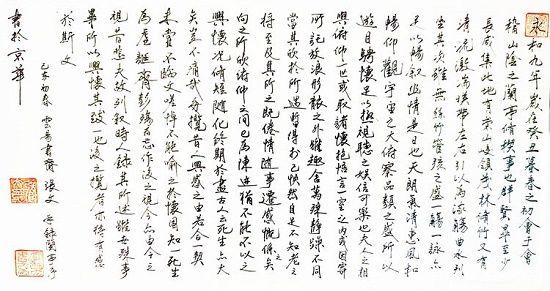 永和九年歲在癸丑暮春之初會于會
稽山陰之蘭亭修禊事也群賢畢至少
長咸集此地有崇山峻領茂林脩竹又有
清流激湍暎帶左右引以為流觴曲水列
坐其次雖無絲竹管弦之盛一觴一詠亦
足以暢敘幽情是日也天朗氣清惠風和
暢仰觀宇宙之大俯察品類之盛所以
遊目騁懷足以極視聽之娛信可樂也夫人之相
與俯仰一世或取諸懷抱悟言一室之內或因寄
所託放浪形骸之外雖趣舍萬殊靜躁不同
當其欣於所遇暫得於己快然自足不知老之
將至及其所之既倦情隨事遷感慨係之矣
向之所欣俯仰之間已為陳迹猶不能不以之
興懷況修短隨化終期於盡古人云死生亦大
矣豈不痛哉每攬昔人興感之由若合一契
未嘗不臨文嗟悼不能喻之於懷固知一死生
為虛誕齊彭殤為妄作後之視今亦由今之
視昔悲夫故列敘時人錄其所述雖世殊事
異所以興懷其致一也後之攬者亦將有感
於斯文
初春 書齋 張文 錄蘭亭序
書於京華